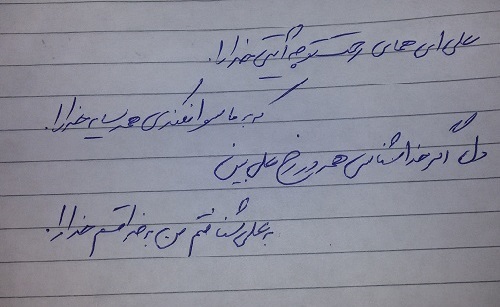 علی ای همای رحمت تو چه آیتی خدا را.
که به ما سوا فکندی همه سایه خدا را.
دل اگر خداشناسی همه در رخ علی بین
به علی شناختم من به خدا قسم خدا را.